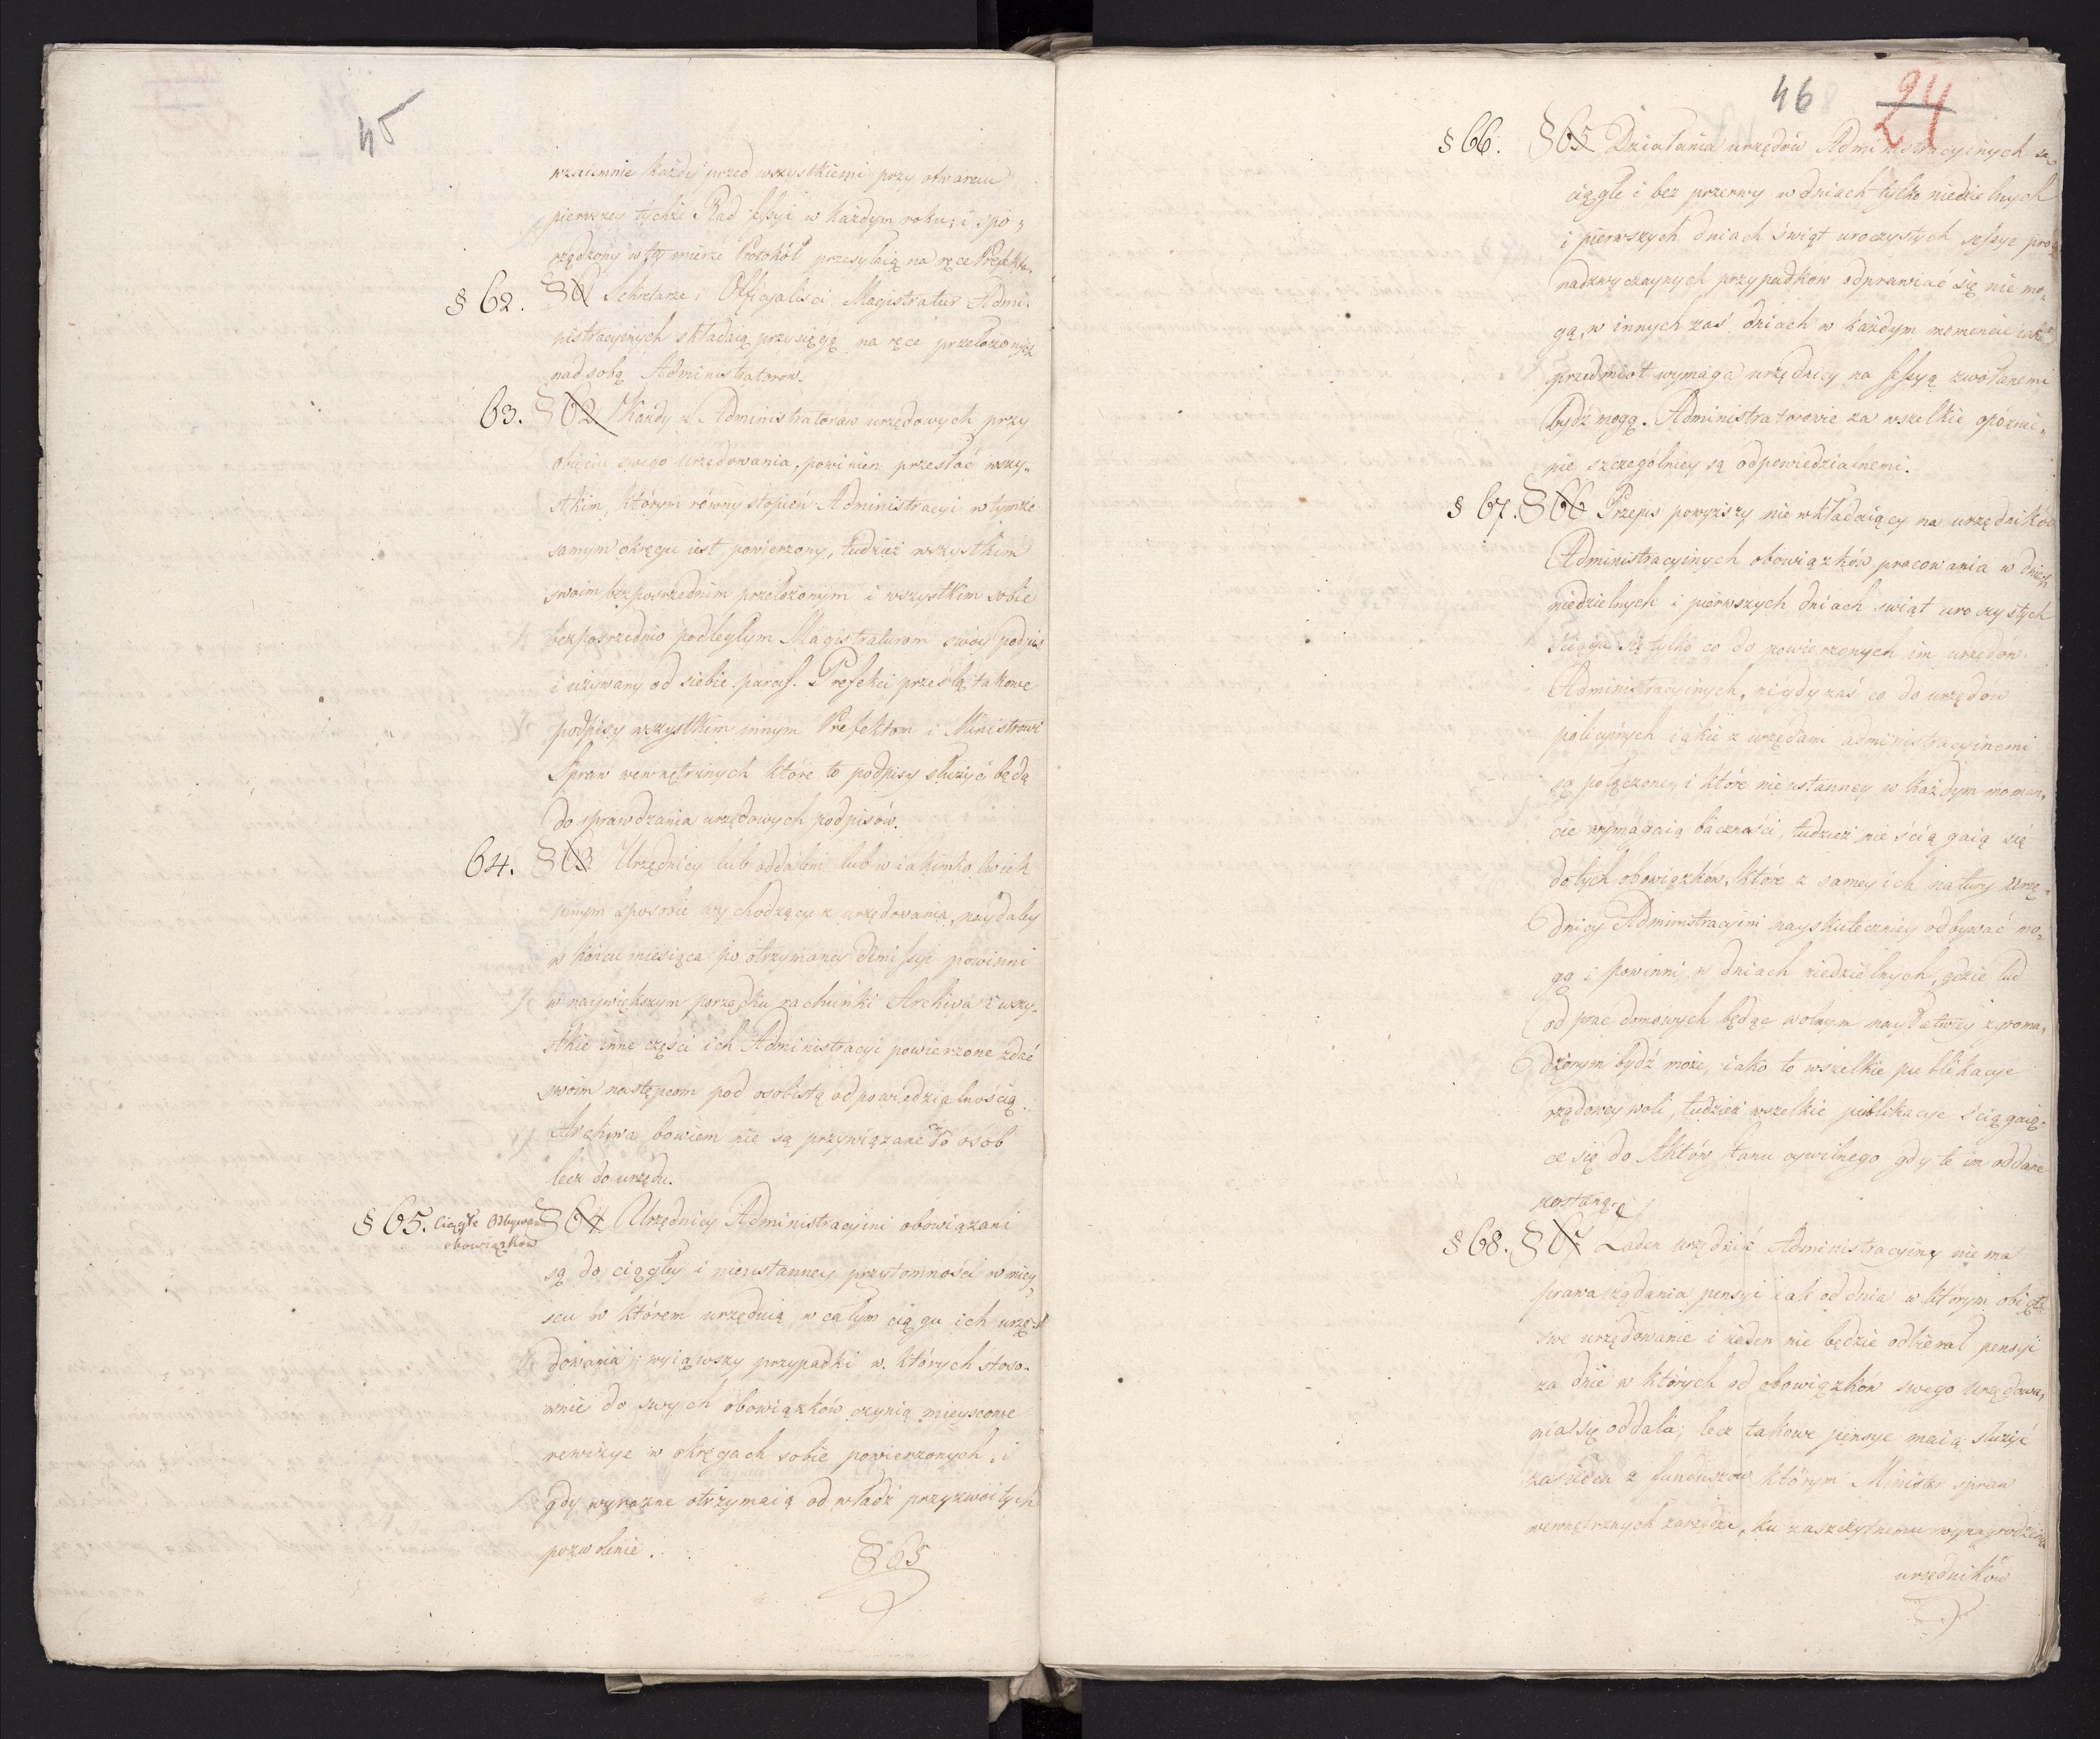 45
wzaiemnie każdy przed wszystkiemi przy otwarciu
pierwszey tychże Rad sessyi w każdym roku, i spo„
rządzony w tey mierze Protokół przesyłaią na ręce Prefekta.
§ 62. § 61 Sekretarze i Officyaliści Magistratur Admi„
nistracyinych składaią przysięgę na ręce przełożonych
nad sobą Administratorow.
63. § 62 Każdy z Administratorów urzędowych przy
obięciu swego urzędowania, powinien przesłać wszy„
stkim, którym równy stopień Administracyi w tymże
samym okręgu iest powierzony, tudzież wszystkim
swoim bezpośrzednim przełożonym i wszystkim sobie
bezpośrzednio podległym Magistraturom swóy podpis
i używany od siebie paraf. Prefekci prześlą takowe
podpisy wszystkim innym Prefektom i Ministrowi
Spraw wewnętrznych które to podpisy służyć będą
do sprawdzania urzędowych podpisów.
64. § 63 Urzędnicy lub oddaleni lub w iakimkolwiek
innym sposobie wychodzący z urzędowania, naydaley
w końcu miesiąca po otrzymaney dimissyi powinni
w naywiększym porządku rachunki Archiwa i wszy„
stkie inne części ich Administracyi powierzone zdać
swoim następcom pod osobistą odpowiedzialnością
Archiwa bowiem nie są przywiązane do osób
lecz do urzędu.
§ 65. Ciągłe Odbywanie obowiązków § 64 Urzędnicy Administracyini obowiązani
są do ciągłey i nieustanney przytomności w miey„
scu w którem urzęduią w całym ciągu ich urzę„
dowania, wyiąwszy przypadki w których stoso„
wnie do swych obowiązków czynią mieyscowe
rewizye w okręgach sobie powierzonych, i
gdy wyraźne otrzymaią od władz przyzwoitych
pozwolenie.
§ 65
46 24
§ 66. § 65 Działania urzędów Administracyinych są
ciągłe i bez przerwy w dniach tylko niedzielnych
i pierwszych dniach świąt uroczystych sessye prócz
nadzwyczaynych przypadków odprawiać się nie mo„
gą, w innych zaś dniach w każdym momencie iak
przedmiot wymaga urzędnicy na sessyą zwołanemi
bydź mogą. Administratorowie za wszelkie opóźnie„
nie szczególniey są odpowiedzialnemi.
§ 67. § 66 Przepis powyższy nie wkładaiący na urzędników
Administracyinych obowiązków pracowania w dniach
niedzielnych i pierwszych dniach swiąt uroczystych
ściąga się tylko co do powierzonych im urzędów
Administracyinych, nigdy zaś co do urzędow
policyinych iakie z urzędami administracyinemi
są połączone, i które nieustanney w każdym momen„
cie wymagaią baczności, tudzież nie ściągaią się
do tych obowiązkow, które z samey ich natury Urzę„
dnicy Administracyini nayskuteczniey odbywać mo„
gą i powinni w dniach niedzielnych, gdzie lud
od prac domowych będąc wolnym nayłatwiey zgroma„
dzonym bydź może, iako to wszelkie publikacye
rządowey woli, tudzież wszelkie publikacye ściągaią„
ce się do Aktów stanu cywilnego gdy te im oddane
zostaną.
§ 68. § 67 Żaden urzędnik Administracyiny nie ma
prawa żądania pensyi iak od dnia w którym obiął
swe urzędowanie i żaden nie będzie odbierał pensyi
za dnie w których od obowiązkow swego urzędowa„
nia się oddala, lecz takowe pensye maią służyć
za ieden z funduszow którym Minister spraw
wewnętrznych zarządza, ku zaszczytnemu wynagrodzeniu
urzędników